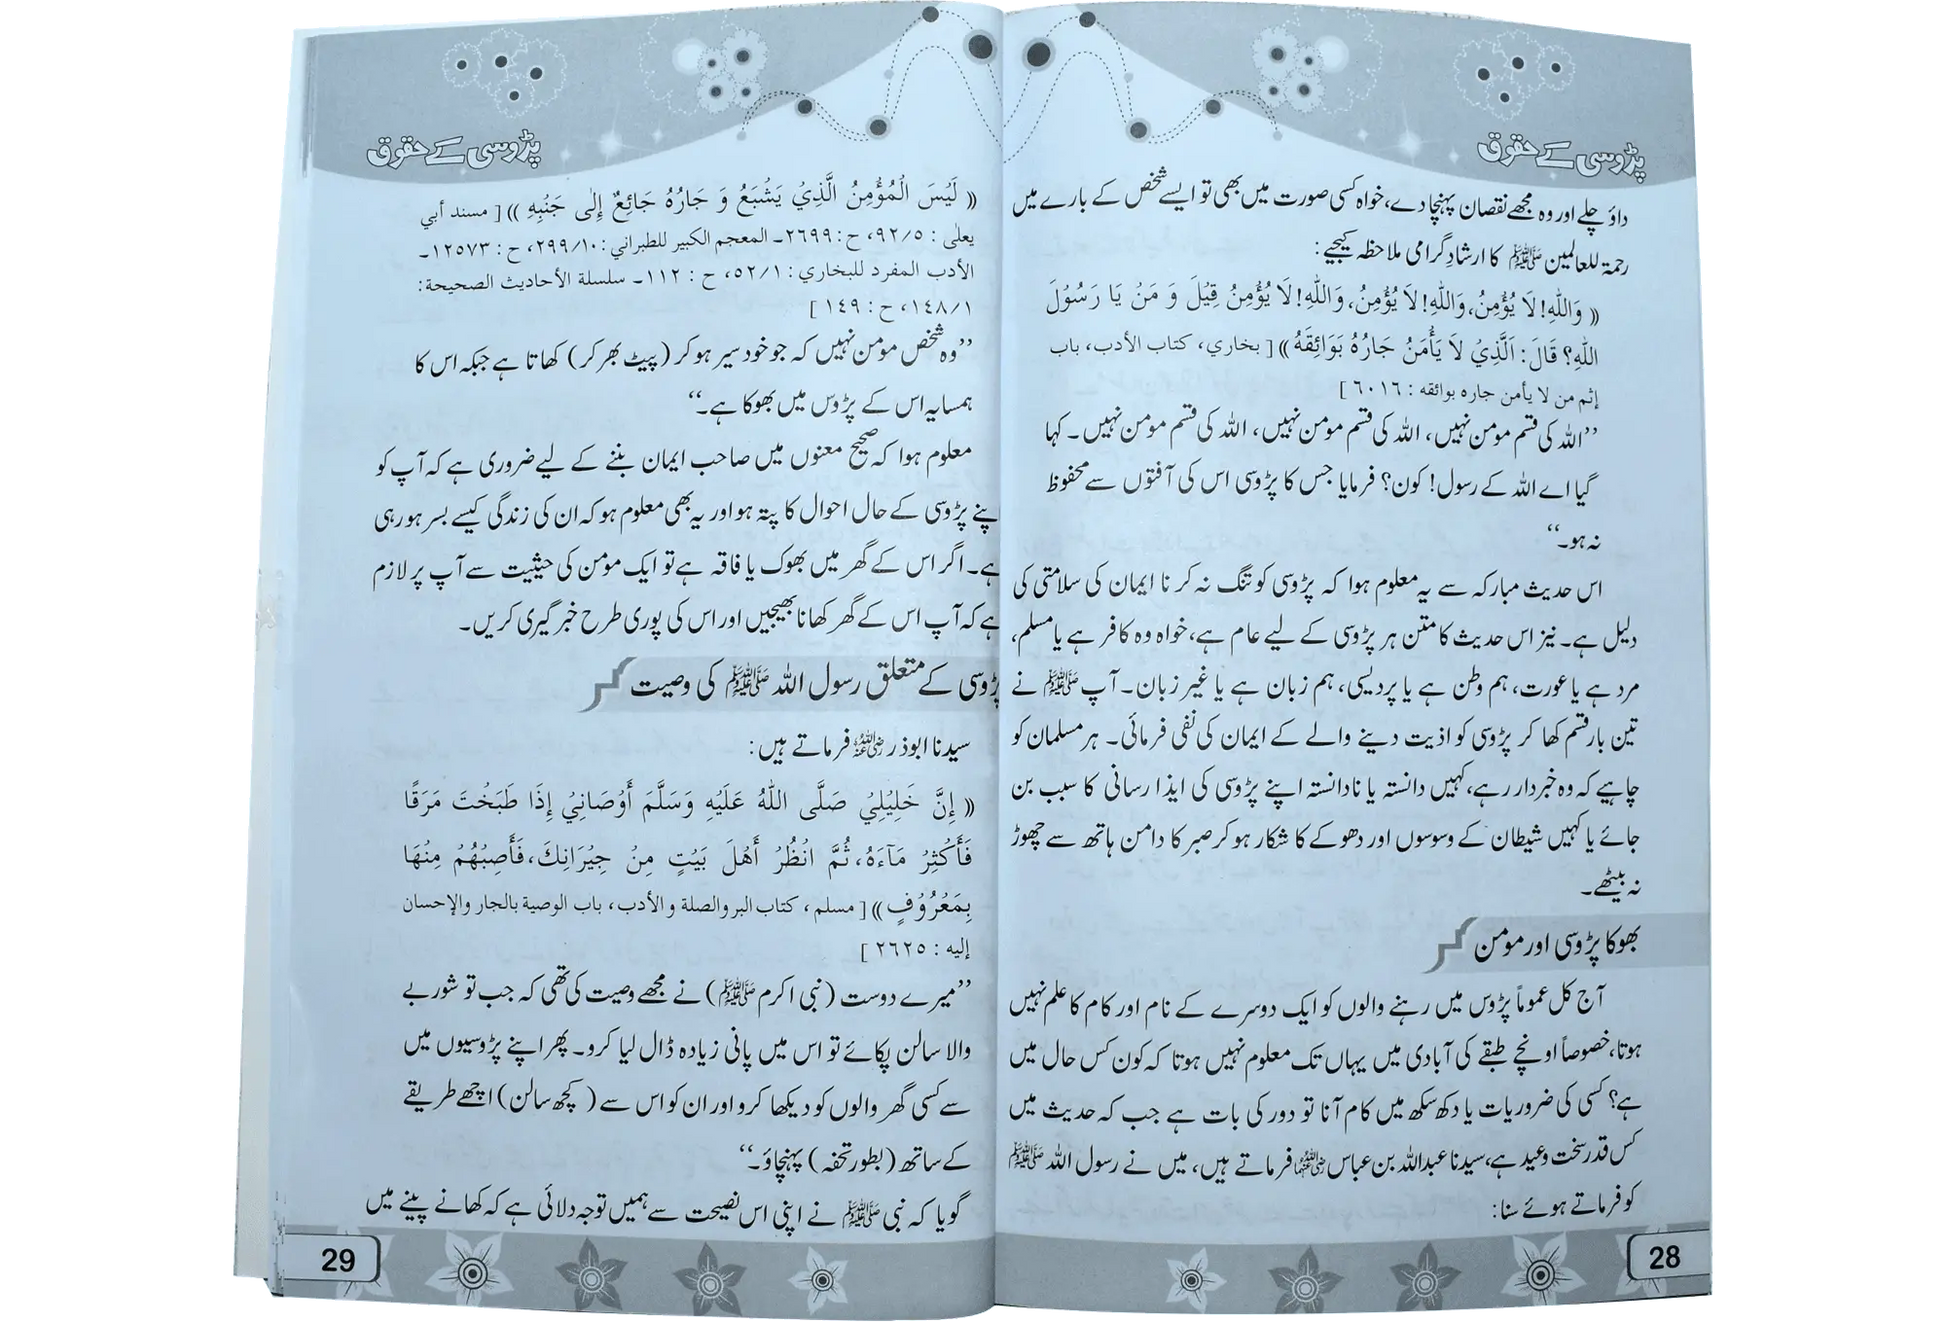 پڑوسی کے حقوق
داؤ چلے اور وہ مجھے نقصان پہنچا دے، خواہ کسی صورت میں بھی تو ایسے شخص کے بارے میں
رحمۃ للعالمین ﷺ کا ارشادِ گرامی ملاحظہ کیجیے:
(( وَاللّٰهِ! لَا يُؤْمِنُ، وَاللّٰهِ! لَا يُؤْمِنُ، وَاللّٰهِ! لَا يُؤْمِنُ قِيْلَ وَ مَنْ يَا رَسُوْلَ
اللّٰهِ؟ قَالَ: اَلَّذِيْ لَا يَأْمَنُ جَارُهُ بَوَائِقَهُ )) [ بخاري، كتاب الأدب، باب
إثم من لا يأمن جاره بوائقه : ٦٠١٦ ]
’’اللہ کی قسم مومن نہیں، اللہ کی قسم مومن نہیں، اللہ کی قسم مومن نہیں۔ کہا
گیا اے اللہ کے رسول! کون؟ فرمایا جس کا پڑوسی اس کی آفتوں سے محفوظ
نہ ہو۔‘‘
اس حدیث مبارکہ سے یہ معلوم ہوا کہ پڑوسی کو تنگ نہ کرنا ایمان کی سلامتی کی
دلیل ہے۔ نیز اس حدیث کا متن ہر پڑوسی کے لیے عام ہے، خواہ وہ کافر ہے یا مسلم،
مرد ہے یا عورت، ہم وطن ہے یا پردیسی، ہم زبان ہے یا غیر زبان۔ آپ ﷺ نے
تین بار قسم کھا کر پڑوسی کو اذیت دینے والے کے ایمان کی نفی فرمائی۔ ہر مسلمان کو
چاہیے کہ وہ خبردار رہے، کہیں دانستہ یا نادانستہ اپنے پڑوسی کی ایذا رسانی کا سبب بن
جائے یا کہیں شیطان کے وسوسوں اور دھوکے کا شکار ہو کر صبر کا دامن ہاتھ سے چھوڑ
نہ بیٹھے۔
بھوکا پڑوسی اور مومن
آج کل عموماً پڑوس میں رہنے والوں کو ایک دوسرے کے نام اور کام کا علم نہیں
ہوتا، خصوصاً اونچے طبقے کی آبادی میں یہاں تک معلوم نہیں ہوتا کہ کون کس حال میں
ہے؟ کسی کی ضروریات یا دکھ سکھ میں کام آنا تو دور کی بات ہے جب کہ حدیث میں
کس قدر سخت وعید ہے، سیدنا عبداللہ بن عباس رضی اللہ عنہما فرماتے ہیں، میں نے رسول اللہ ﷺ
کو فرماتے ہوئے سنا:
28
پڑوسی کے حقوق
(( لَيْسَ الْمُؤْمِنُ الَّذِيْ يَشْبَعُ وَ جَارُهُ جَائِعٌ إِلٰى جَنْبِهِ )) [ مسند أبي
يعلى : ٩٢/٥، ح : ٢٦٩٩۔ المعجم الكبير للطبراني : ٢٩٩/١٠، ح : ١٢٥٧٣۔
الأدب المفرد للبخاري : ٥٢/١، ح : ١١٢۔ سلسلة الأحاديث الصحيحة:
١٤٨/١، ح : ١٤٩ ]
’’وہ شخص مومن نہیں کہ جو خود سیر ہو کر (پیٹ بھر کر) کھاتا ہے جبکہ اس کا
ہمسایہ اس کے پڑوس میں بھوکا ہے۔‘‘
معلوم ہوا کہ صحیح معنوں میں صاحب ایمان بننے کے لیے ضروری ہے کہ آپ کو
پنے پڑوسی کے حال احوال کا پتہ ہو اور یہ بھی معلوم ہو کہ ان کی زندگی کیسے بسر ہو رہی
ہے۔ اگر اس کے گھر میں بھوک یا فاقہ ہے تو ایک مومن کی حیثیت سے آپ پر لازم
ہے کہ آپ اس کے گھر کھانا بھیجیں اور اس کی پوری طرح خبر گیری کریں۔
پڑوسی کے متعلق رسول اللہ ﷺ کی وصیت
سیدنا ابوذر رضی اللہ عنہ فرماتے ہیں:
(( إِنَّ خَلِيْلِيْ صَلَّى اللّٰهُ عَلَيْهِ وَسَلَّمَ أَوْصَانِيْ إِذَا طَبَخْتَ مَرَقًا
فَأَكْثِرْ مَآءَهُ، ثُمَّ انْظُرْ أَهْلَ بَيْتٍ مِنْ جِيْرَانِكَ، فَأَصِبْهُمْ مِنْهَا
بِمَعْرُوْفٍ )) [ مسلم، كتاب البر والصلة و الأدب، باب الوصية بالجار والإحسان
إليه : ٢٦٢٥ ]
’’میرے دوست (نبی اکرم ﷺ) نے مجھے وصیت کی تھی کہ جب تو شوربے
والا سالن پکائے تو اس میں پانی زیادہ ڈال لیا کرو۔ پھر اپنے پڑوسیوں میں
سے کسی گھر والوں کو دیکھا کرو اور ان کو اس سے (کچھ سالن) اچھے طریقے
کے ساتھ (بطور تحفہ) پہنچاؤ۔‘‘
گویا کہ نبی ﷺ نے اپنی اس نصیحت سے ہمیں توجہ دلائی ہے کہ کھانے پینے میں
29